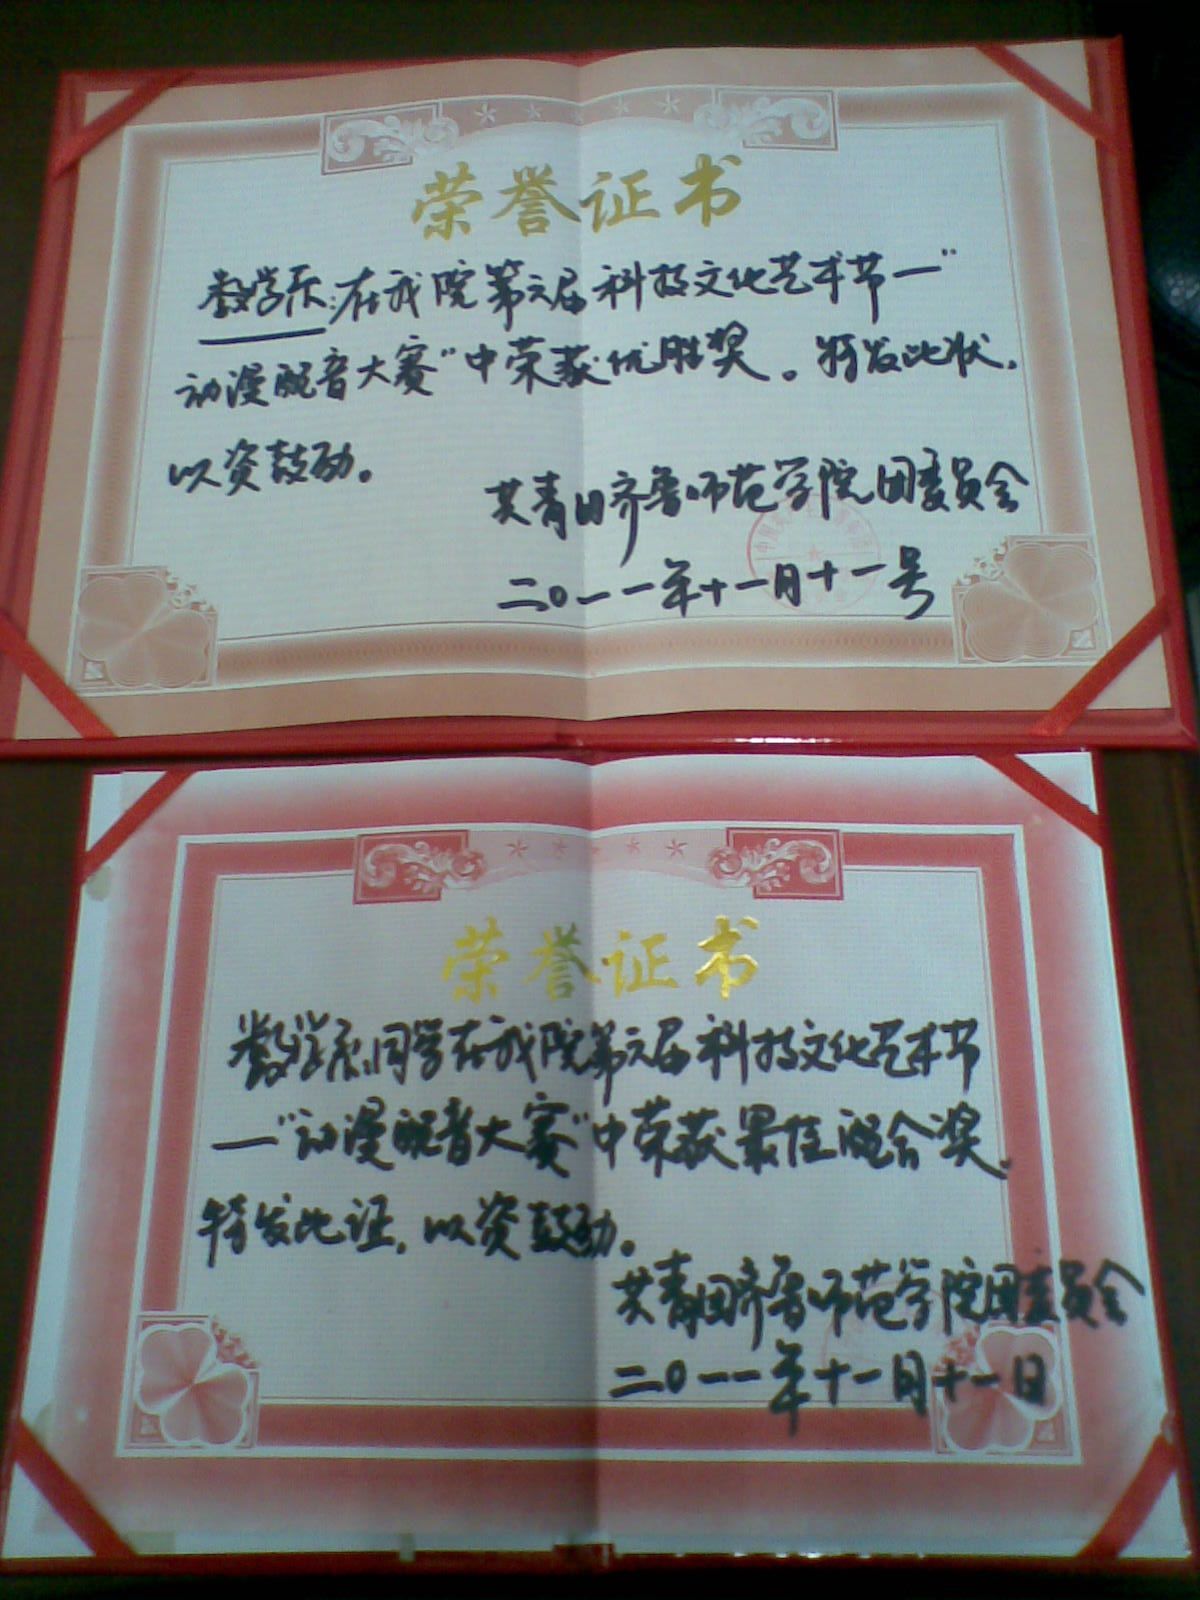 荣誉证书
数学系:在我院第六届科技文化艺术节一"
动漫配音大赛"中荣获优胜奖。特发此状,
以资鼓励。
共青团齐鲁师范学院团委员会
二〇一一年十一月十一号
荣誉证书
数学系同学在我院第六届科技文化艺术节
一"动漫配音大赛"中荣获最佳配合奖。
特发此证,以资鼓励。
共青团齐鲁师范学院团委员会
二〇一一年十一月十一日